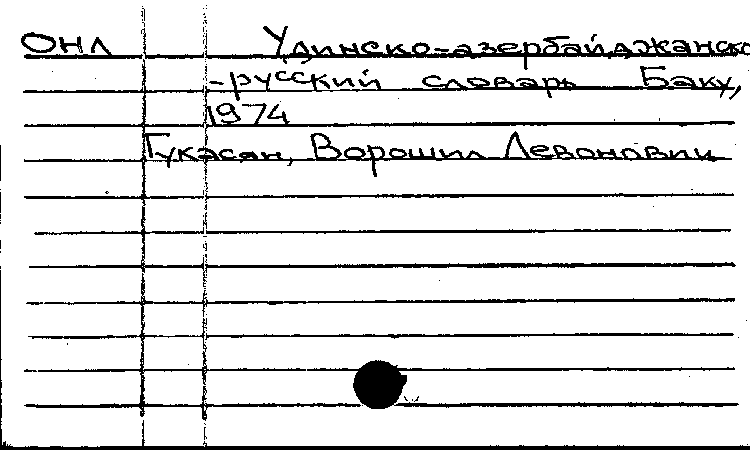 ОНЛ Удинско-азербайджанско
-русский словарь Баку,
1974
Гукасян, Ворошил Левонович